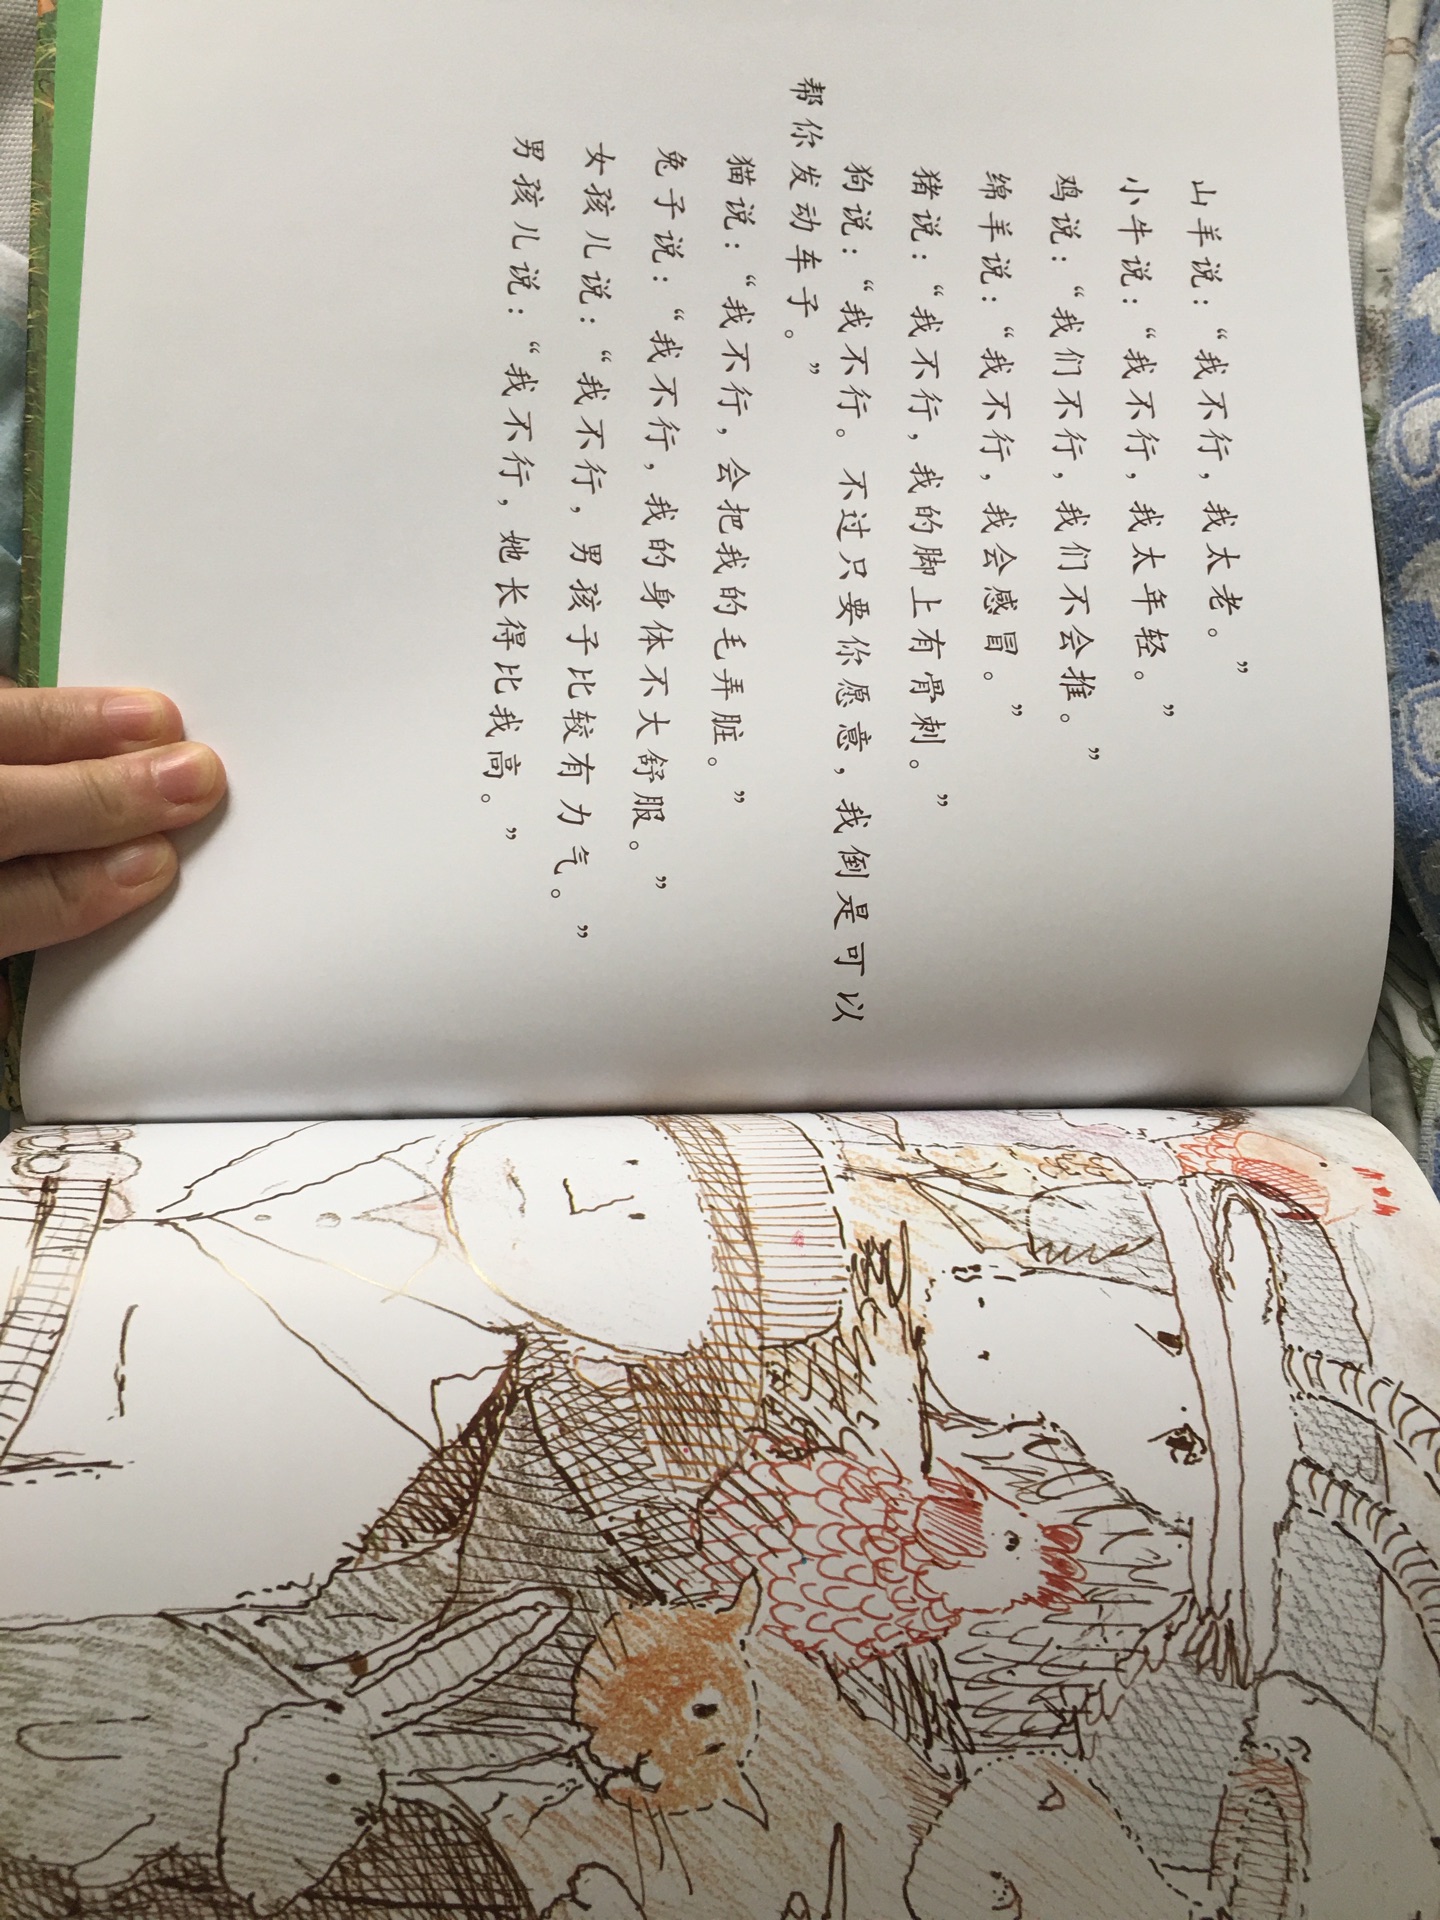 山羊说：“我不行，我太老。”
小牛说：“我不行，我太年轻。”
鸡说：“我们不行，我们不会推。”
绵羊说：“我不行，我会感冒。”
猪说：“我不行，我的脚上有骨刺。”
狗说：“我不行。不过只要你愿意，我倒是可以
帮你发动车子。”
猫说：“我不行，会把我的毛弄脏。”
兔子说：“我不行，我的身体不大舒服。”
女孩儿说：“我不行，男孩子比较有力气。”
男孩儿说：“我不行，她长得比我高。”